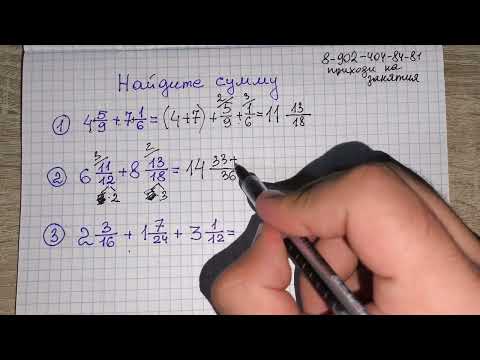 8-902-404-84-81
приходи на
занятия
Найдите сумму
① 4 5/9 + 7 1/6 = (4+7) + 2/ 5/9 + 3/ 1/6 = 11 13/18
② 6 3/ 11/12 + 8 2/ 13/18 = 14 33+/36
6·2 6·3
③ 2 3/16 + 1 7/24 + 3 1/12 =